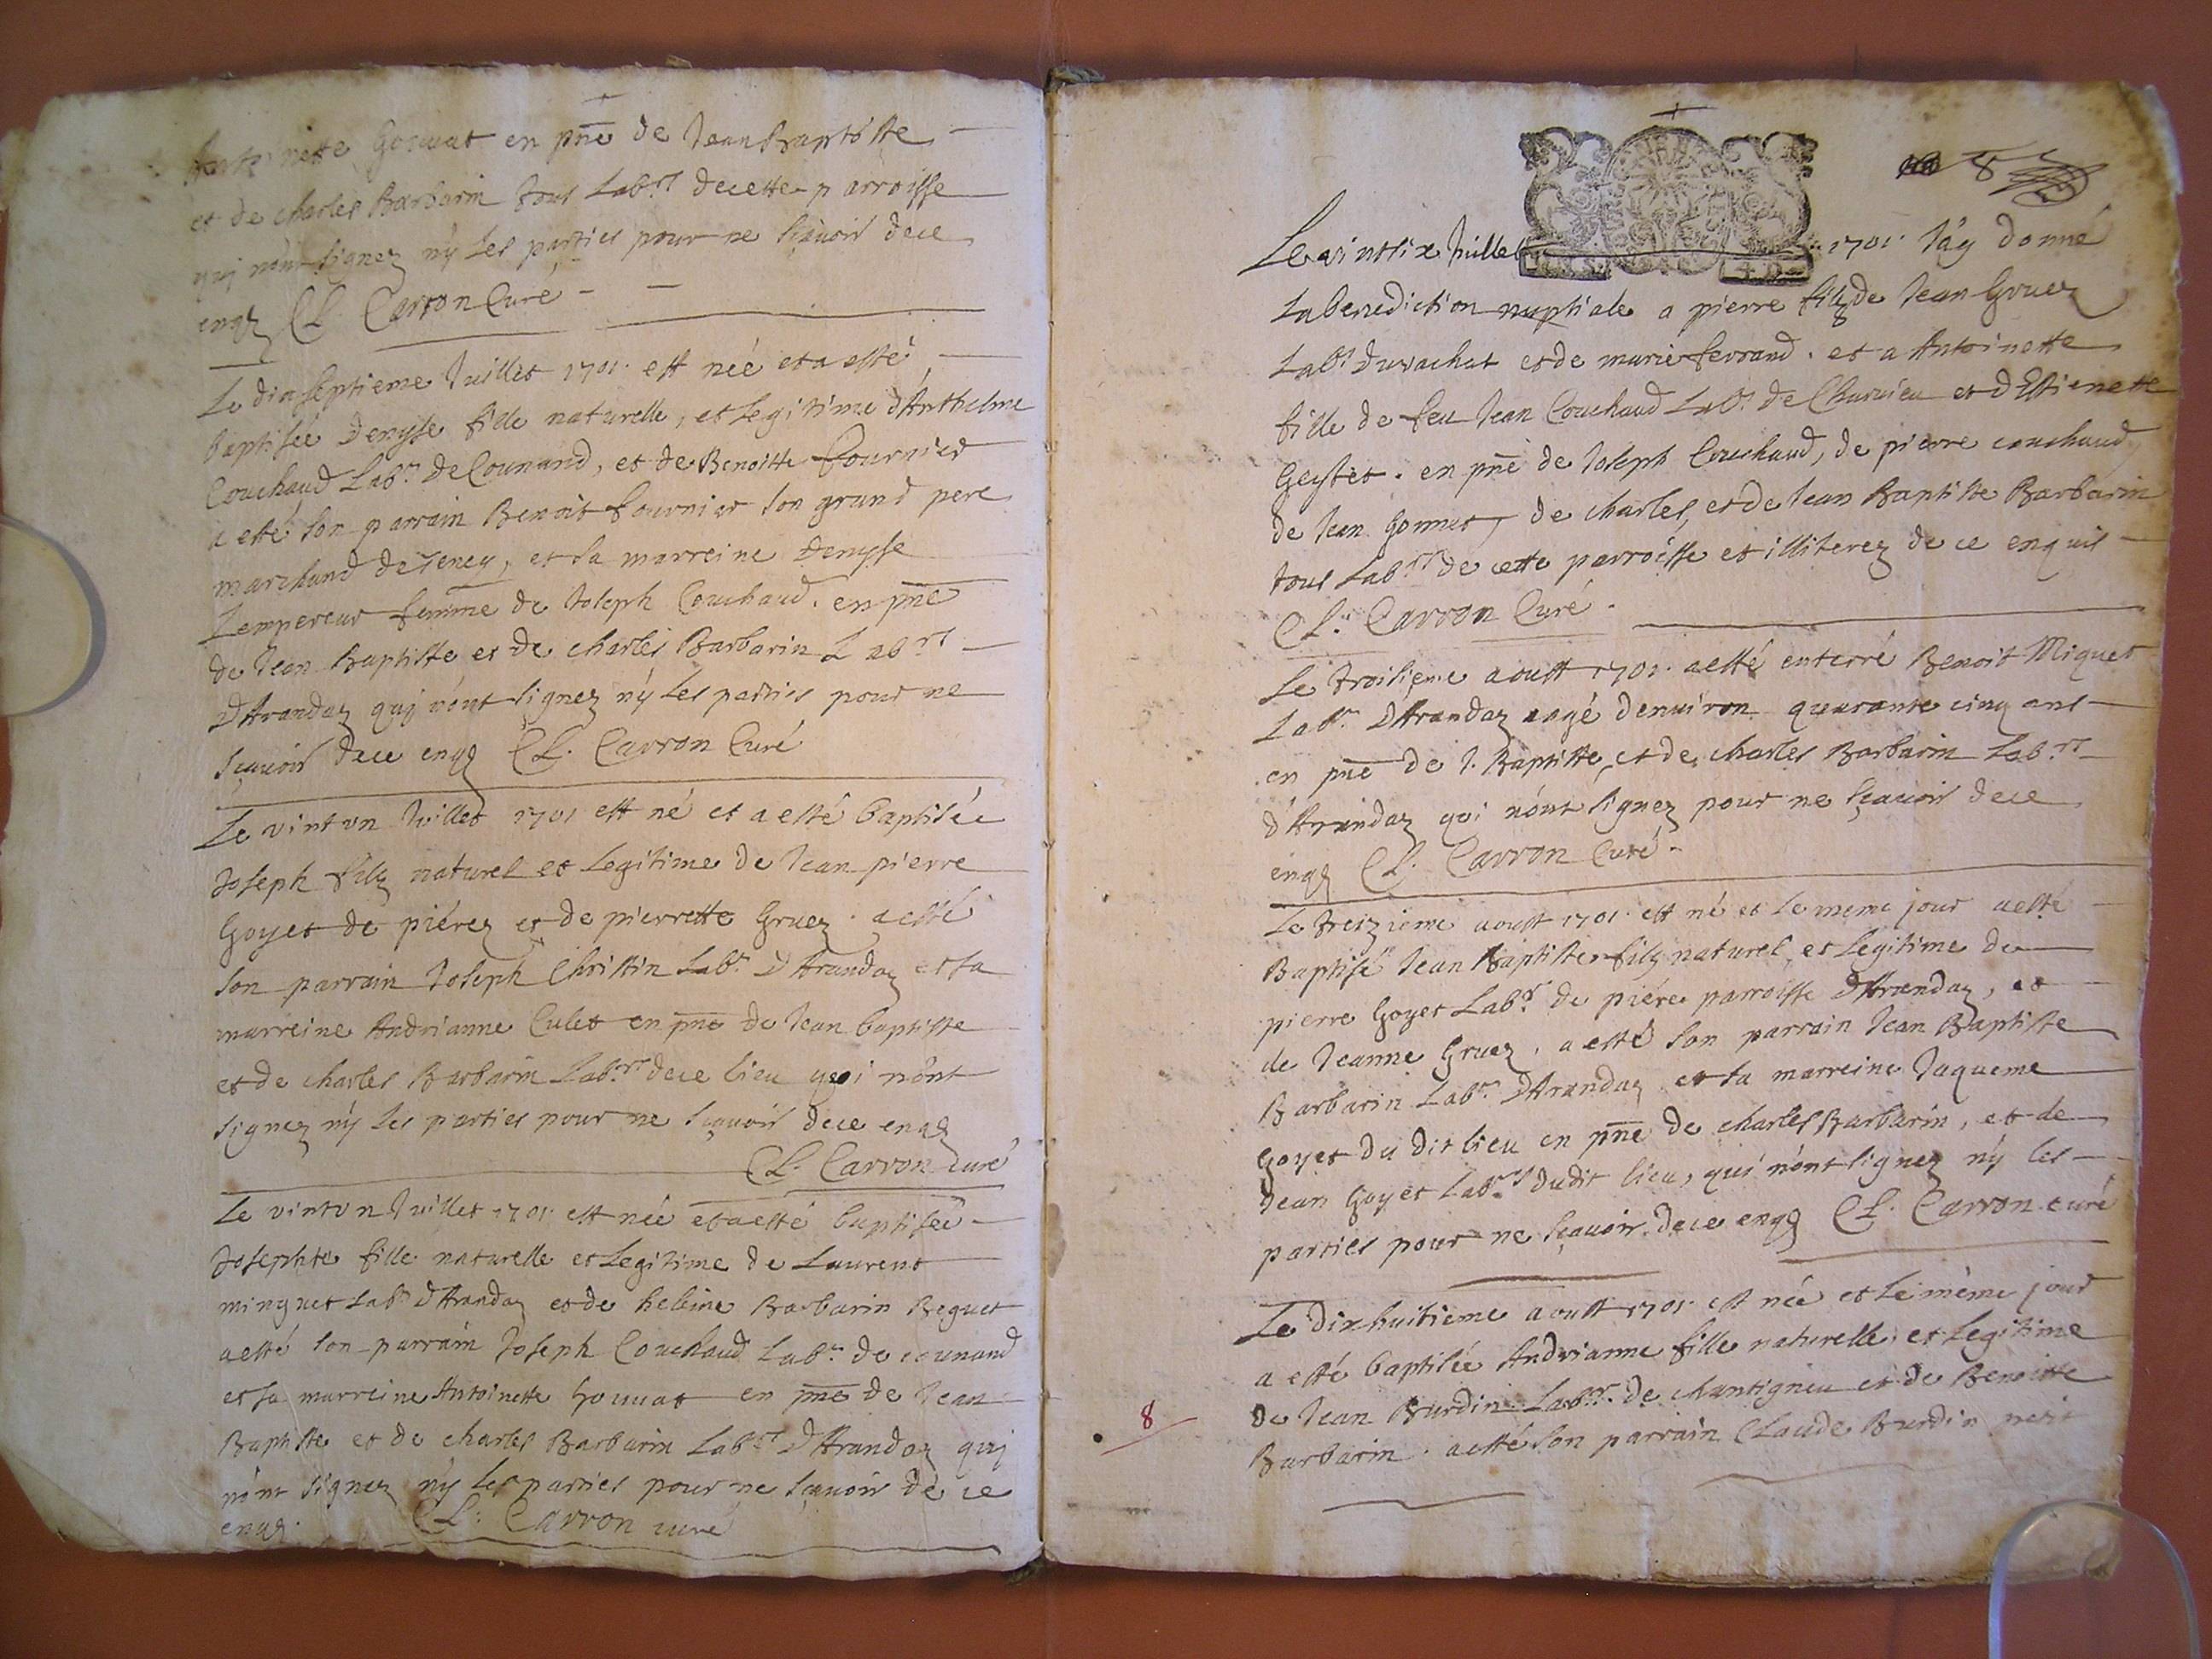 Antoinette en pñe de Jean Baptiste
et de charles Barbarin tous Labrs decette parroisse
quj nónt signez ny les parties pour ne sçavoir dece
enqs CL. Carron Curé
Le dixseptieme Juillet 1701. est née et a esté
baptisée Denyse fille naturelle, et legitime d'Anthelme
Couchaud Labr. De Counand, et de Benoitte fournier
a esté son parrain Benoit fournier son grand pere
marchand de tency, et sa marreine Denyse
Lempereur femme de Joseph Couchaud. en pñe
de Jean Baptiste et de charles Barbarin Labrs
D'Arandaz quj nónt signez ny les parties pour ne
sçavoir dece enqs CL. Carron Curé
Le vint un Juillet 1701 est né et a esté baptisée
Joseph filz naturel et legitime de Jean pierre
Goyet de piérez et de pierrette Gruez. a esté
son parrain Joseph Christin Labr. D'Arandaz et sa
marreine Andrianne Culet en pñe de Jean baptiste
et de charles Barbarin Labrs dece lieu qui nónt
signez ny les parties pour ne sçavoir dece enqs
CL. Carron curé
Le vint un Juillet 1701. est née et a esté baptisée
Josephte fille naturelle et legitime de Laurent
minguet Labr D'Arandaz et de heleine Barbarin Beguet
a esté son parrain Joseph Couchaud Labr. de counand
et sa marreine Antoinette en pñe de Jean
Baptiste et de charles Barbarin Labrs D'Arandaz quj
nónt signez ny les parties pour ne sçavoir de ce
enqs. CL. Carron curé
8
Le vintsix Juillet 1701. J'ay donné
la benediction nuptiale a pierre filz de Jean Gruez
Labr. du vachat et de marie ferrand. et a Antoinette
fille de feu Jean Couchaud Labr. de Charvieu et d'Estienette
Geystet. en pñe de Joseph Couchaud, de pierre couchaud,
de Jean Gonnet, de charles, et de Jean Baptiste Barbarin
tous Labrs de cette parroisse et illiterez de ce enquis
CL. Carron Curé.
Le troisieme aoust 1701. a esté enterré Benoit Miguet
Labr. D'Arandaz aagé denviron quarante cinq ans
en pñe de J. Baptiste, et de charles Barbarin Labrs
d'Arandaz qui nónt signez pour ne sçavoir dece
enqs CL. Carron Curé.
Le treizieme aoust 1701. est né et le meme jour a esté
Baptisé Jean Baptiste filz naturel et legitime de
pierre Goyet Labr. de piére parroisse D'Arandaz, et
de Jeanne Gruez, a esté son parrain Jean Baptiste
Barbarin Labr. D'Arandaz et sa marreine Jaqueme
Goyet du dit lieu en pñe de charles Barbarin, et de
Jean Goyet Labrs dudit lieu, qui nónt signez ny les
parties pour ne sçavoir dece enqs CL. Carron curé
Le dixhuitieme aoust 1701. est née et le méme jour
a esté baptisée Andrianne fille naturelle et legitime
8 de Jean Burdin Labr. de chantigneu et de Benoitte
Barbarin. a esté son parrain Claude Burdin